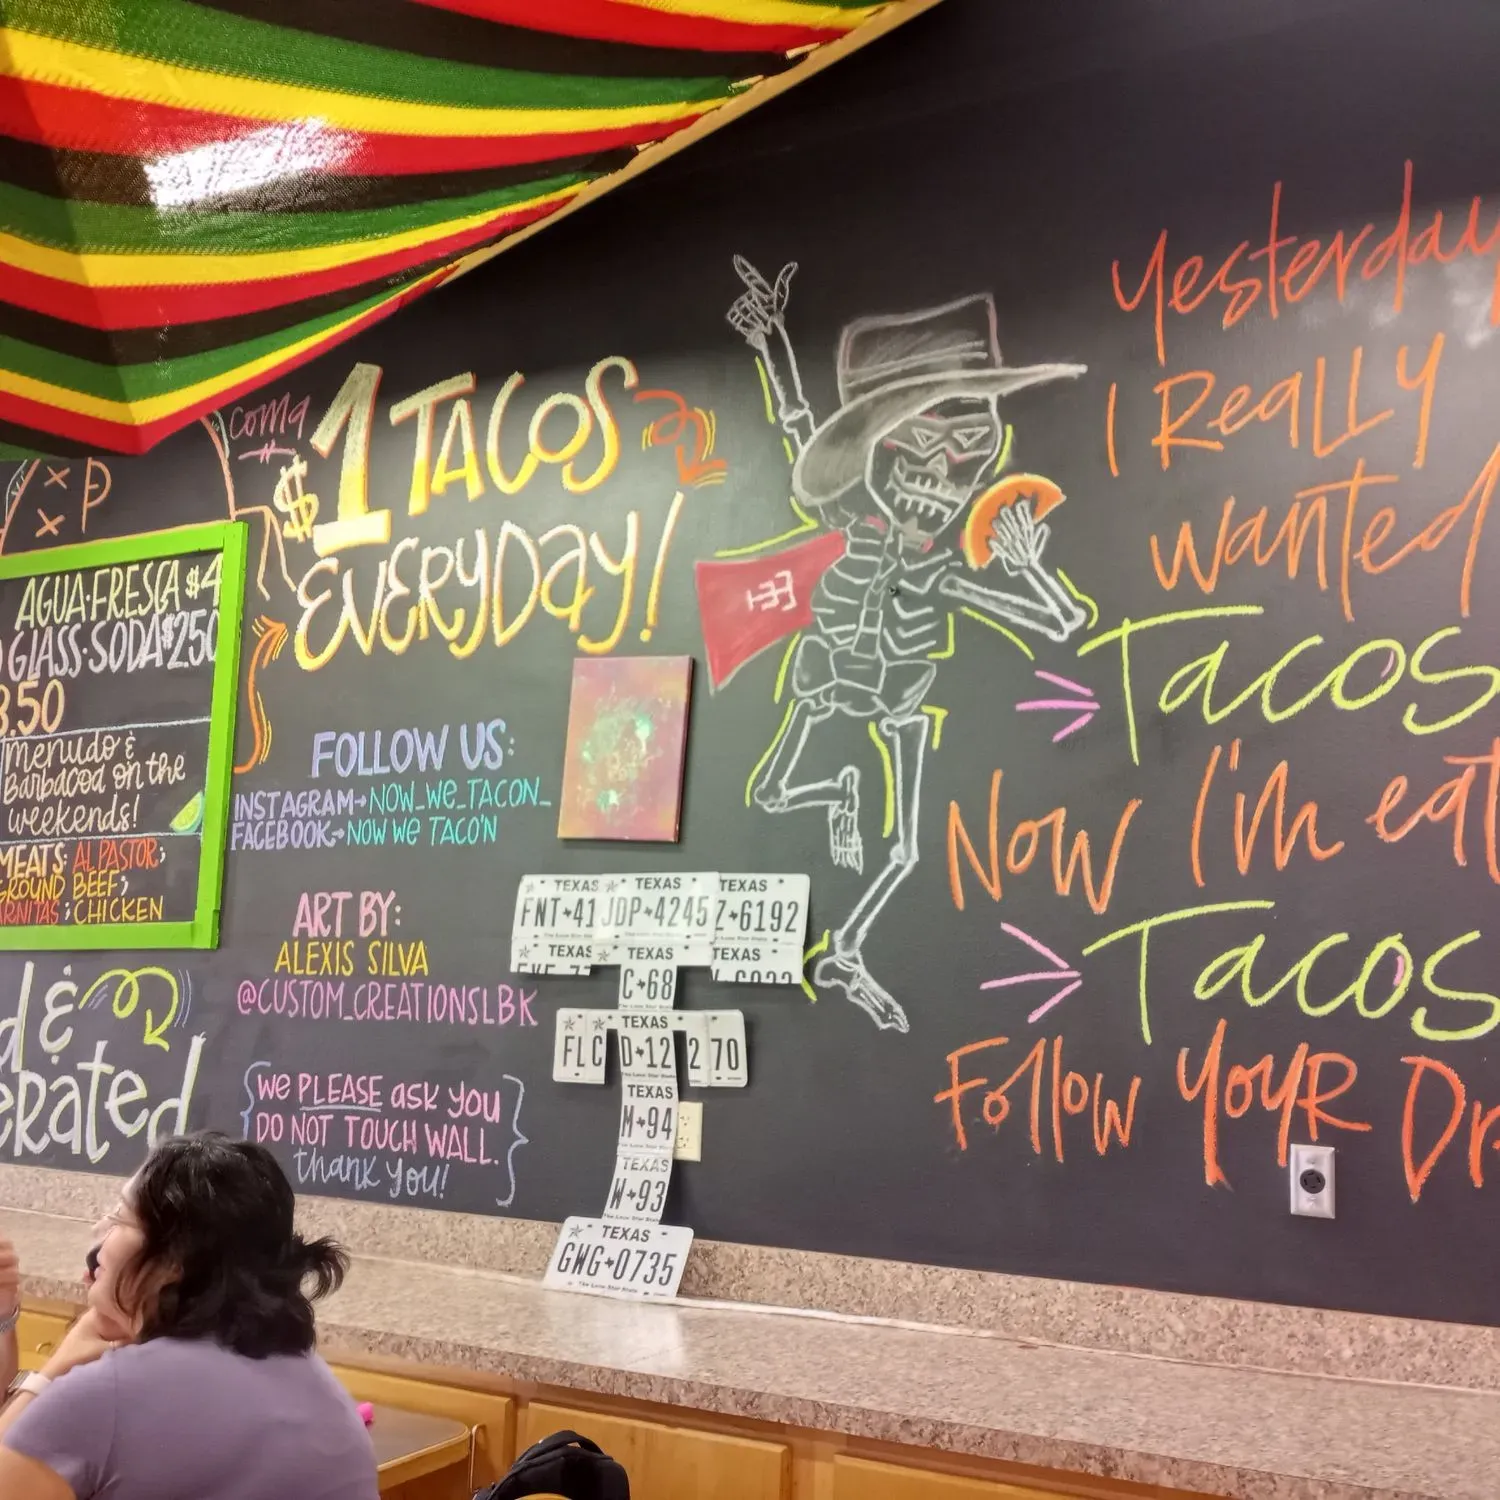 coma
$1 TACOS
EVERYDAY!
AGUA·FRESCA $4
GLASS·SODA $2.50
3.50
menudo &
Barbacoa on the
weekends!
MEATS: AL PASTOR;
GROUND BEEF;
CHICKEN
FOLLOW US:
INSTAGRAM→NOW_WE_TACON_
FACEBOOK→NOW WE TACO'N
ART BY:
ALEXIS SILVA
@CUSTOM_CREATIONSLBK
We PLEASE ask you
DO NOT TOUCH WALL.
thank you!
&
TEXAS TEXAS TEXAS
FNT 41 JDP 4245 Z 6192
TEXAS TEXAS TEXAS
C 68
TEXAS
FLC D 12 2 70
TEXAS
M 94
TEXAS
W 93
TEXAS
GWG 0735
The Lone Star State
Yesterday
I Really
wanted
Tacos
Now I'm eat
Tacos
Follow Your Dr